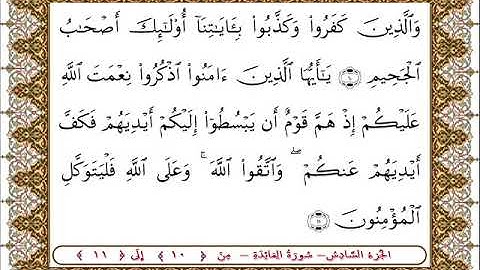 وَٱلَّذِينَ كَفَرُوا۟ وَكَذَّبُوا۟ بِـَٔايَـٰتِنَآ أُو۟لَـٰٓئِكَ أَصْحَـٰبُ
ٱلْجَحِيمِ ١٠ يَـٰٓأَيُّهَا ٱلَّذِينَ ءَامَنُوا۟ ٱذْكُرُوا۟ نِعْمَتَ ٱللَّهِ
عَلَيْكُمْ إِذْ هَمَّ قَوْمٌ أَن يَبْسُطُوٓا۟ إِلَيْكُمْ أَيْدِيَهُمْ فَكَفَّ
أَيْدِيَهُمْ عَنكُمْ ۖ وَٱتَّقُوا۟ ٱللَّهَ ۚ وَعَلَى ٱللَّهِ فَلْيَتَوَكَّلِ
ٱلْمُؤْمِنُونَ ١١
الجزء السّادس – سُورَةُ المَائِدَةِ – مِنْ ﴿ ١٠ ﴾ إلَى ﴿ ١١ ﴾